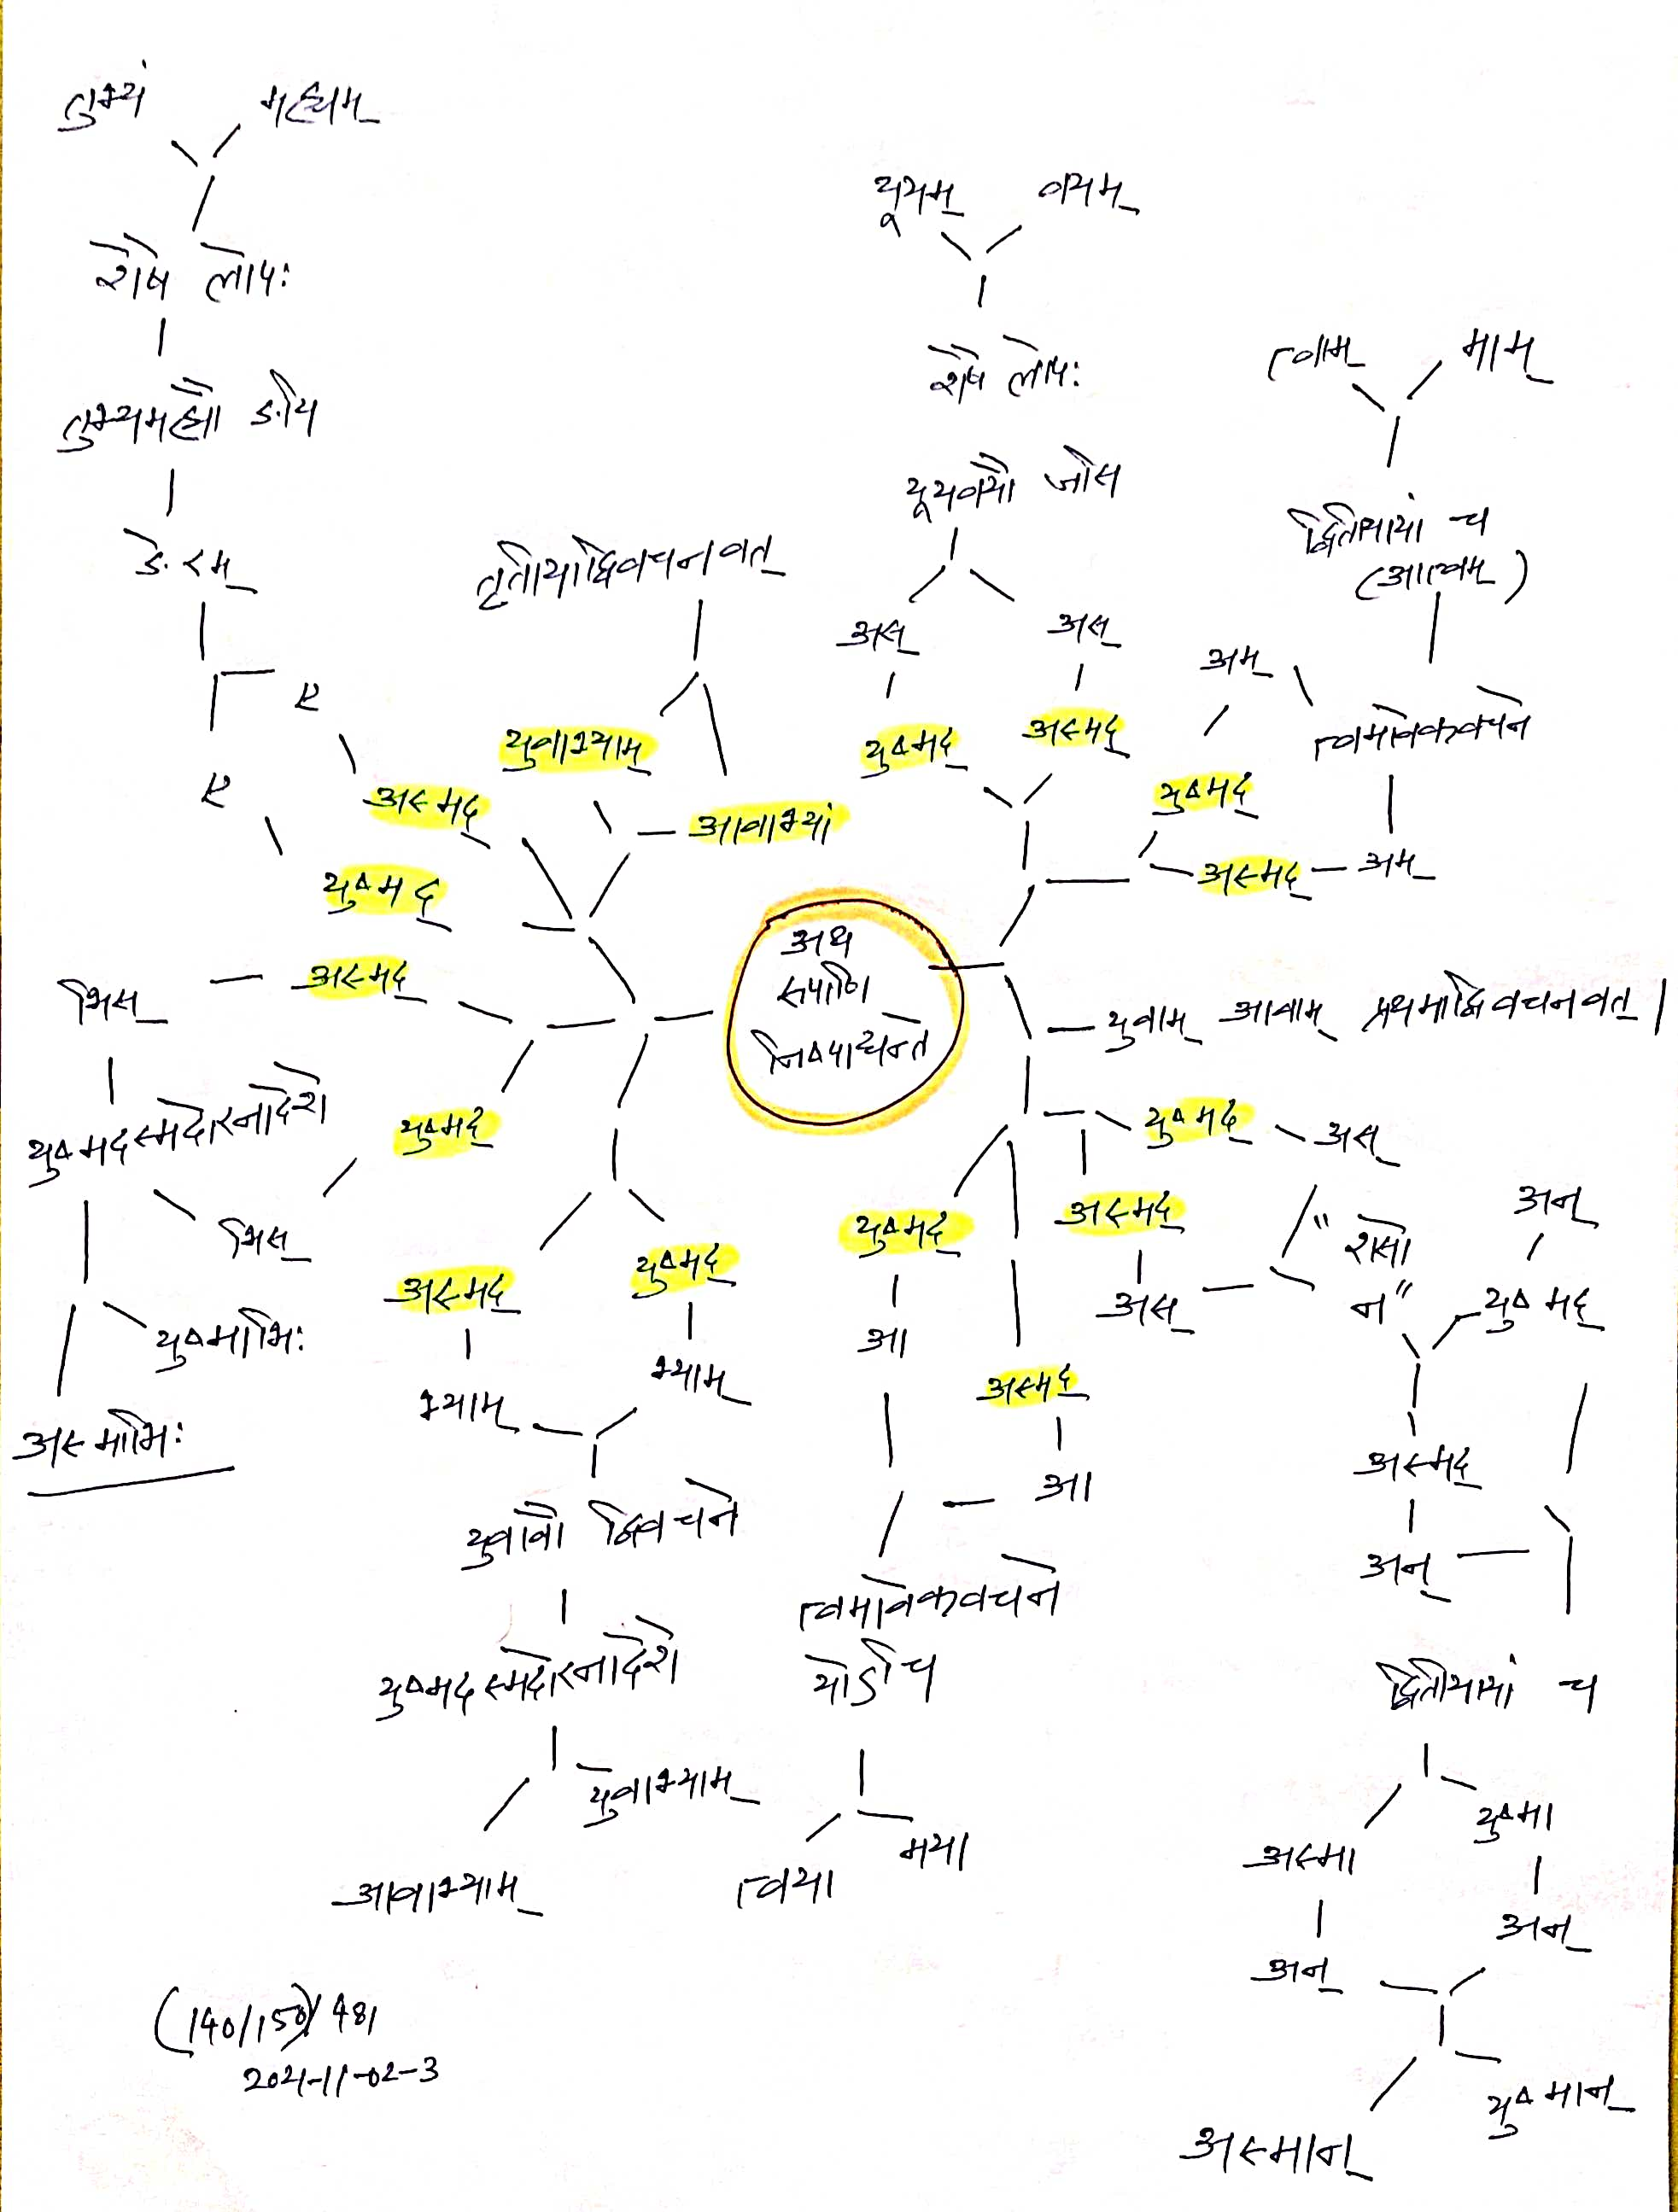 तुभ्यं मह्यम्
शेषे लोपः
तुभ्यमह्यौ ङयि
ङे. रम्
ए
ए
अस्मद्
युष्मद्
तृतीयाद्विवचनवत्
युवाभ्याम्
आवाभ्यां
यूयम् वयम्
शेषे लोपः
यूयवयौ जसि
अस् अस्
युष्मद् अस्मद्
त्वाम् माम्
द्वितीयायां च
(आत्वम्)
त्वमावेकवचने
अम्
युष्मद्
अस्मद् अम्
अथ
रूपाणि
निष्पाद्यन्ते
युवाम् आवाम् प्रथमाद्विवचनवत् |
भिस् अस्मद्
युष्मदस्मदोरनादेशे
युष्मद्
भिस्
युष्माभिः
अस्माभिः
अस्मद् युष्मद्
भ्याम् भ्याम्
युवावौ द्विवचने
युष्मदस्मदोरनादेशे
युवाभ्याम्
आवाभ्याम्
युष्मद्
आ
अस्मद्
आ
त्वमावेकवचने
योऽचि
त्वया मया
युष्मद् अस्
अस्मद्
अस्
"शसो
न"
अन्
युष्मद्
अस्मद्
अन्
द्वितीयायां च
युष्मा
अस्मा
अन्
अन्
युष्मान्
अस्मान्
(140/150)/481
2021-11-02-3